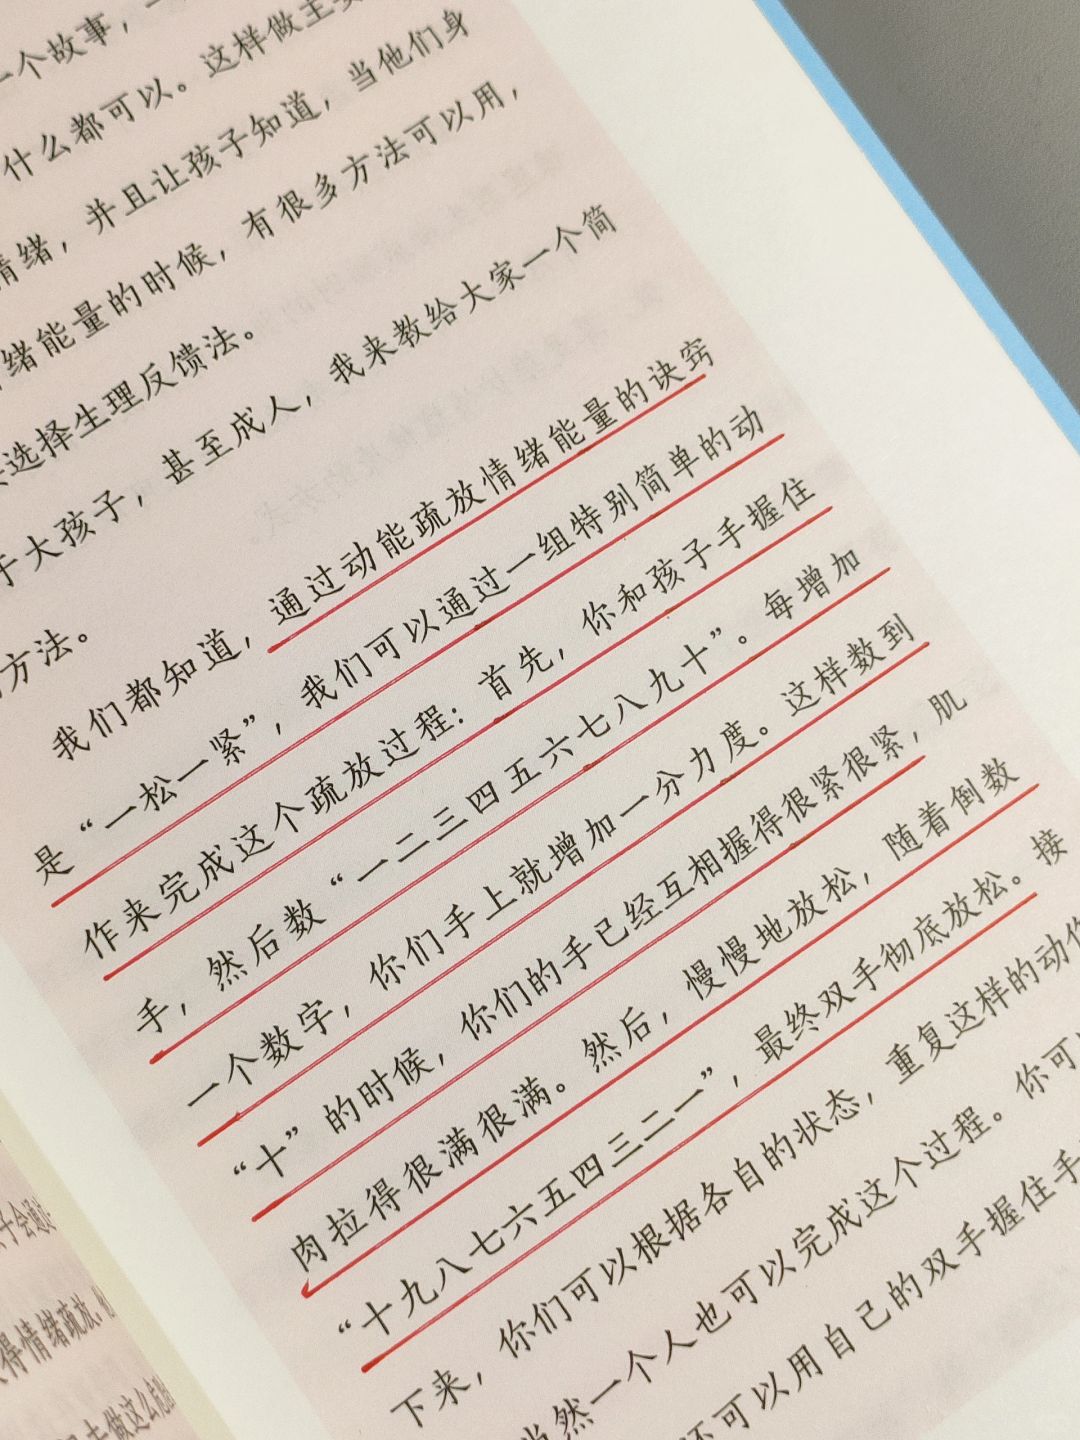 一个故事，一
什么都可以。这样做主要
情绪，并且让孩子知道，当他们身
绪能量的时候，有很多方法可以用，
选择生理反馈法。
于大孩子，甚至成人，我来教给大家一个简
方法。
我们都知道，通过动能疏放情绪能量的诀窍
是“一松一紧”，我们可以通过一组特别简单的动
作来完成这个疏放过程：首先，你和孩子手握住
手，然后数“一二三四五六七八九十”。每增加
一个数字，你们手上就增加一分力度。这样数到
“十”的时候，你们的手已经互相握得很紧很紧，肌
肉拉得很满很满。然后，慢慢地放松，随着倒数
“十九八七六五四三二一”，最终双手彻底放松。接
下来，你们可以根据各自的状态，重复这样的动作
当然一个人也可以完成这个过程。你可以
还可以用自己的双手握住手
子会通过
得情绪疏放。
去做这么